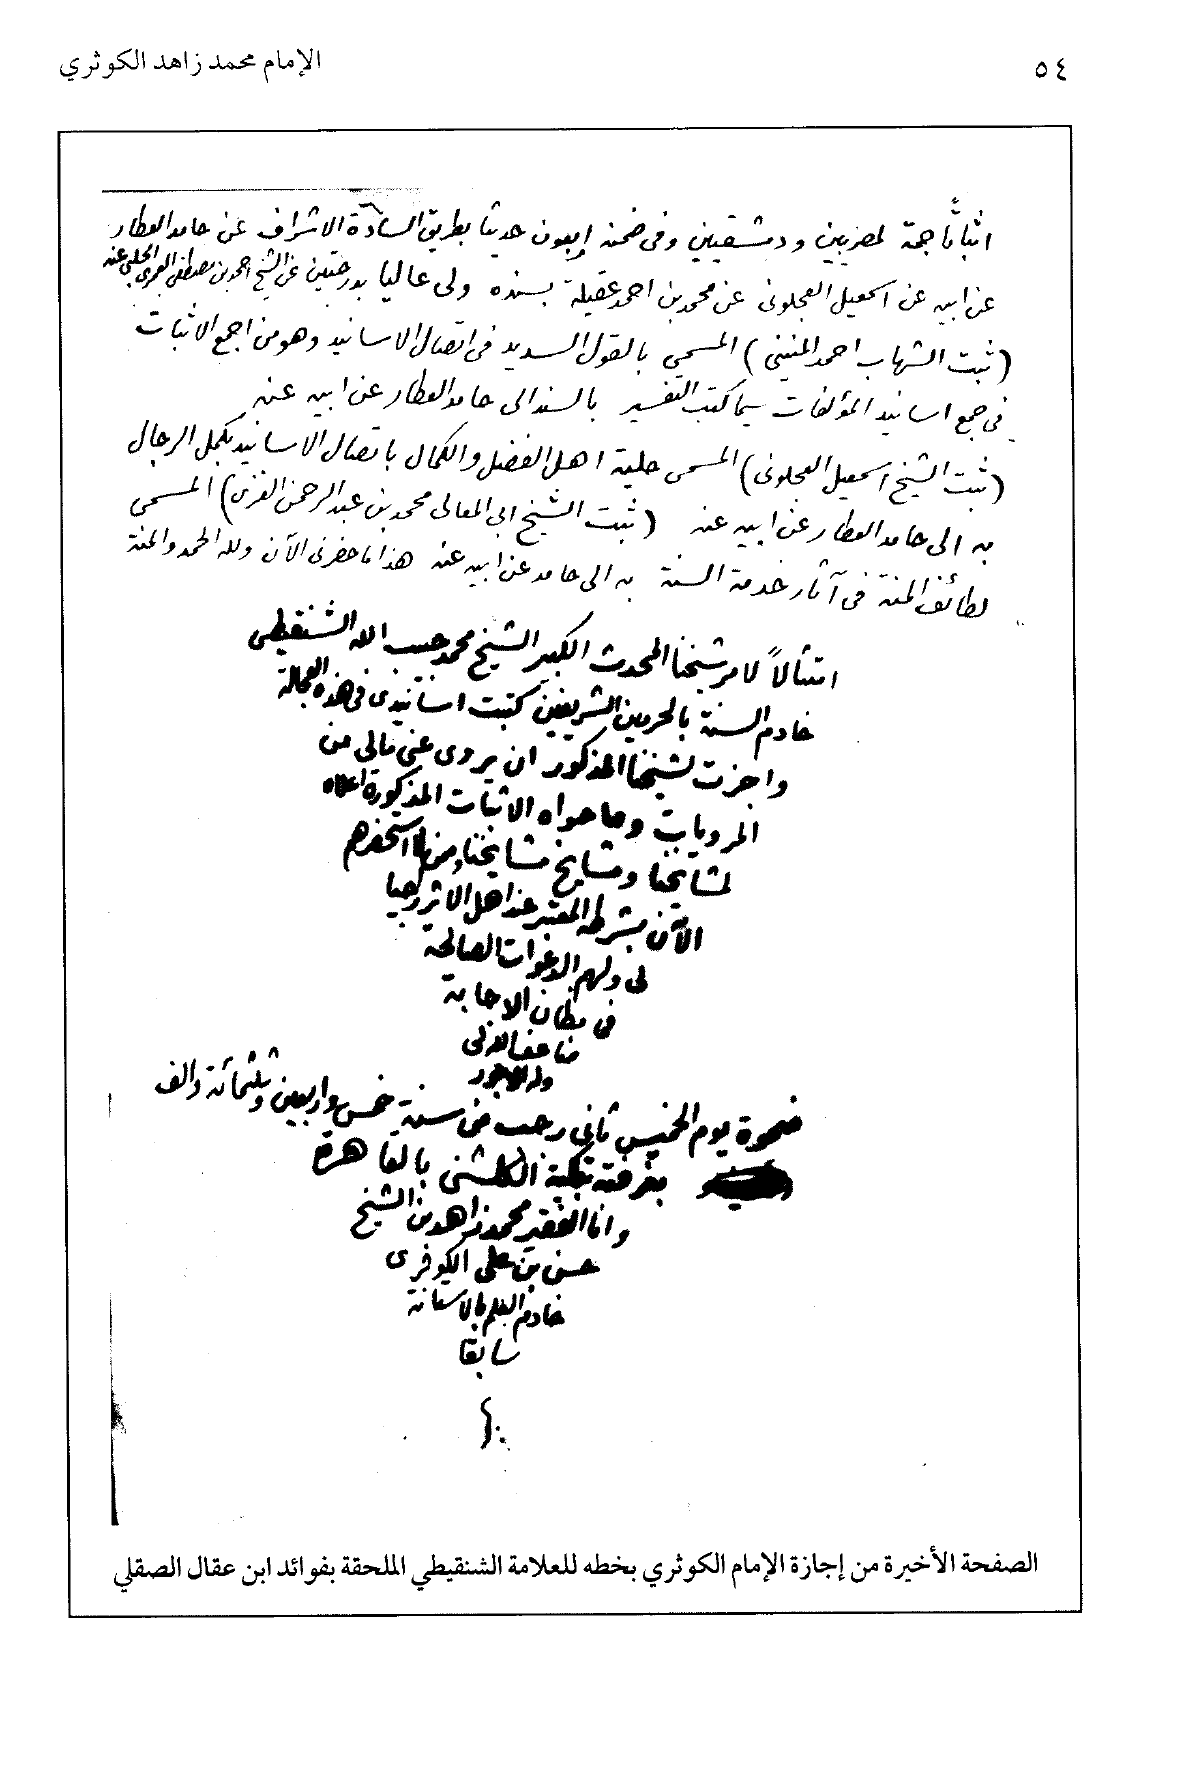 ٥٤
الإمام محمد زاهد الكوثري
اثباتا جمة لمصريين ودمشقيين وفى ضمنه اربعون حديثا بطريق السادة الاشراف عن حامد العطار
عن ابيه عن اسمعيل العجلونى عن محمد بن احمد عقيلة بسنده ولى عاليا بدرجتين عن الشيخ احمد بن مصطفى العمرى الحلبى عنه
(ثبت الشهاب احمد المنينى) المسمى بالقول السديد فى اتصال الاسانيد وهو من اجمع الاثبات
فى جمع اسانيد المؤلفات سيما كتب التفسير بالسند الى حامد العطار عن ابيه عنه
(ثبت الشيخ اسمعيل العجلونى) المسمى حلية اهل الفضل والكمال باتصال الاسانيد بكمل الرجال
به الى حامد العطار عن ابيه عنه (ثبت الشيخ ابى المعالى محمد بن عبد الرحمن الغزى) المسمى
لطائف المنة فى آثار خدمة السنة به الى حامد عن ابيه عنه هذا ما حضرنى الآن ولله الحمد والمنة
امتثالاً لامر شيخنا المحدث الكبير الشيخ محمد حبيب الله الشنقيطى
خادم السنة بالحرمين الشريفين كتبت اسانيدى فى هذه العجالة
واجزت لشيخنا المذكور ان يروى عنى مالى من
المرويات وما حواه الاثبات المذكورة اعلاه
لمشايخنا ومشايخ مشايخنا ومن لم استحضرهم
الآن بشرطه المعتبر عند اهل الاثر راجيا
لى ولهم الدعوات الصالحة
فى مظان الاجابة
ضاعف الله لى
وله الاجور
ضحوة يوم الخميس ثانى رجب من سنة خمس واربعين وثلثمائة والف
بغرفته بتكية الكلشنى بالقاهرة
وانا الفقير محمد زاهد بن الشيخ
حسن بن على الكوثرى
خادم العلم بالاستانة
سابقا
الصفحة الأخيرة من إجازة الإمام الكوثري بخطه للعلامة الشنقيطي الملحقة بفوائد ابن عقال الصقلي